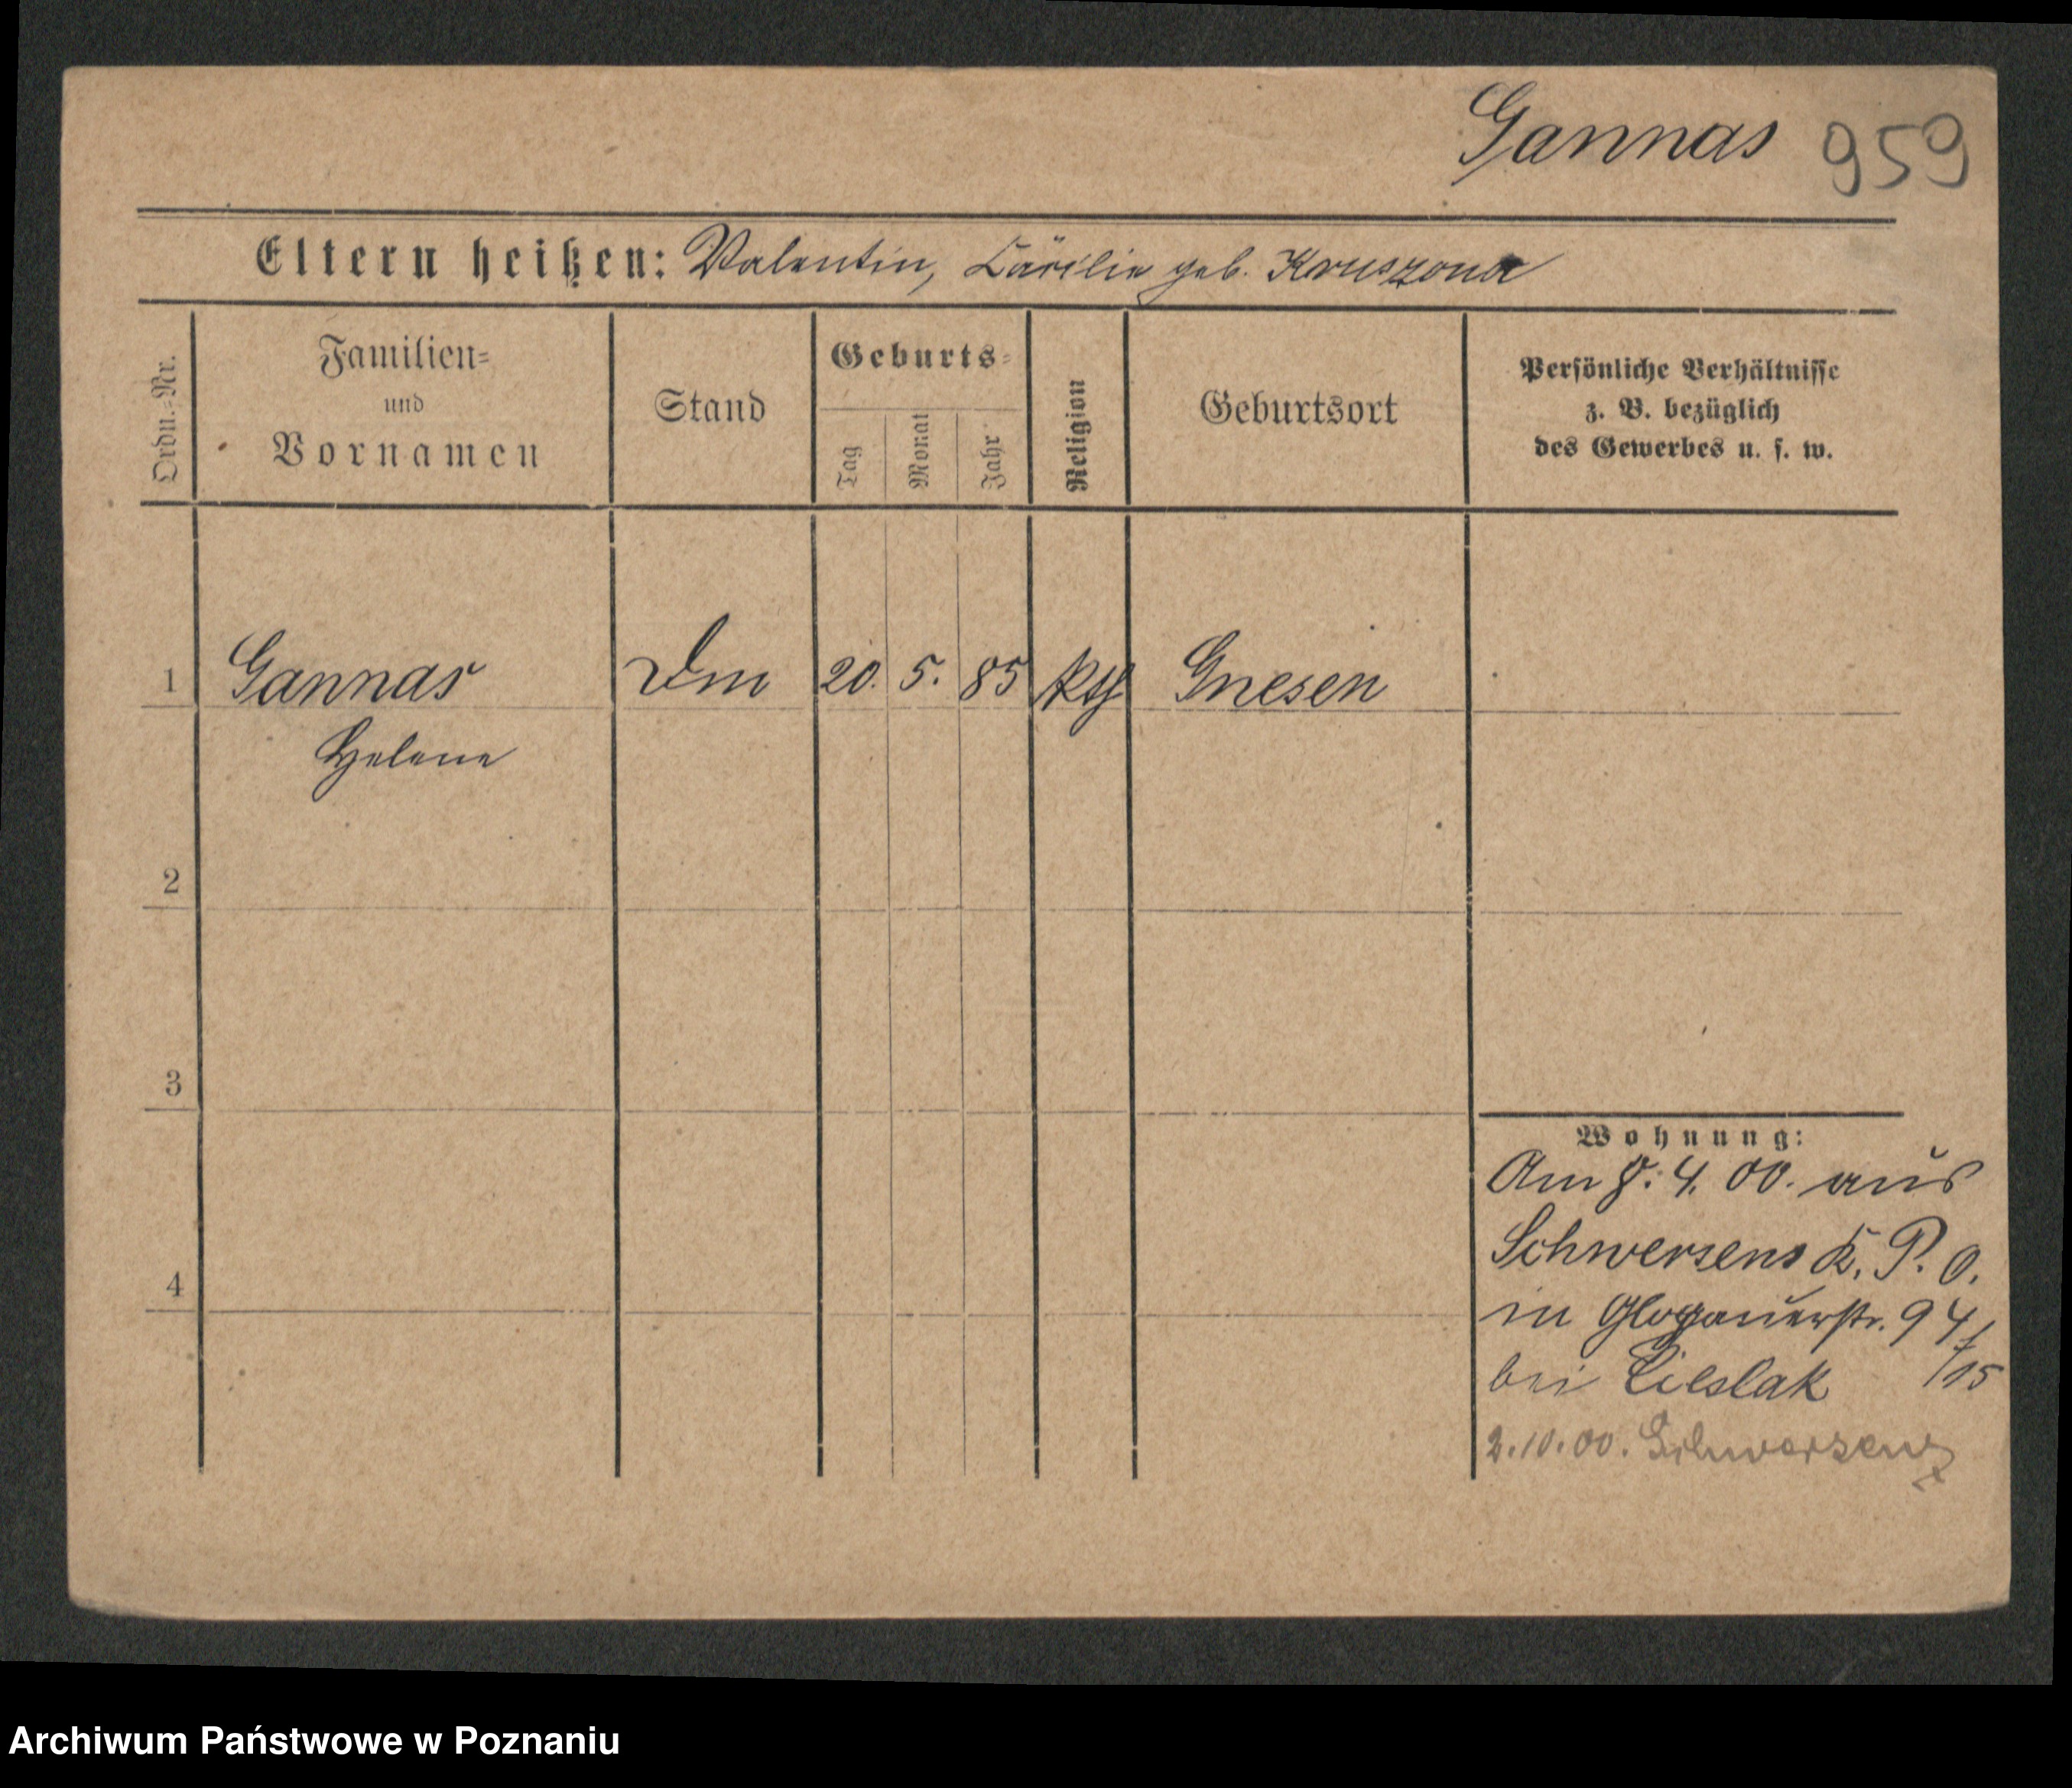 Gannas 959
Eltern heißen: Valentin, Cäcilie geb. Kruszona
Ordn.-Nr.
Familien-
und
Vornamen
Stand
Geburts-
Tag
Monat
Jahr
Religion
Geburtsort
Persönliche Verhältnisse
z. B. bezüglich
des Gewerbes u. s. w.
1 Gannas Dm 20. 5. 85 kth Gnesen
Helene
2
3
Wohnung:
Am 8. 4. 00. aus
Schwersens K. P. O.
4
in Glogauerstr. 94/15
bei Cieslak
2.10.00. Schwersenz
Archiwum Państwowe w Poznaniu